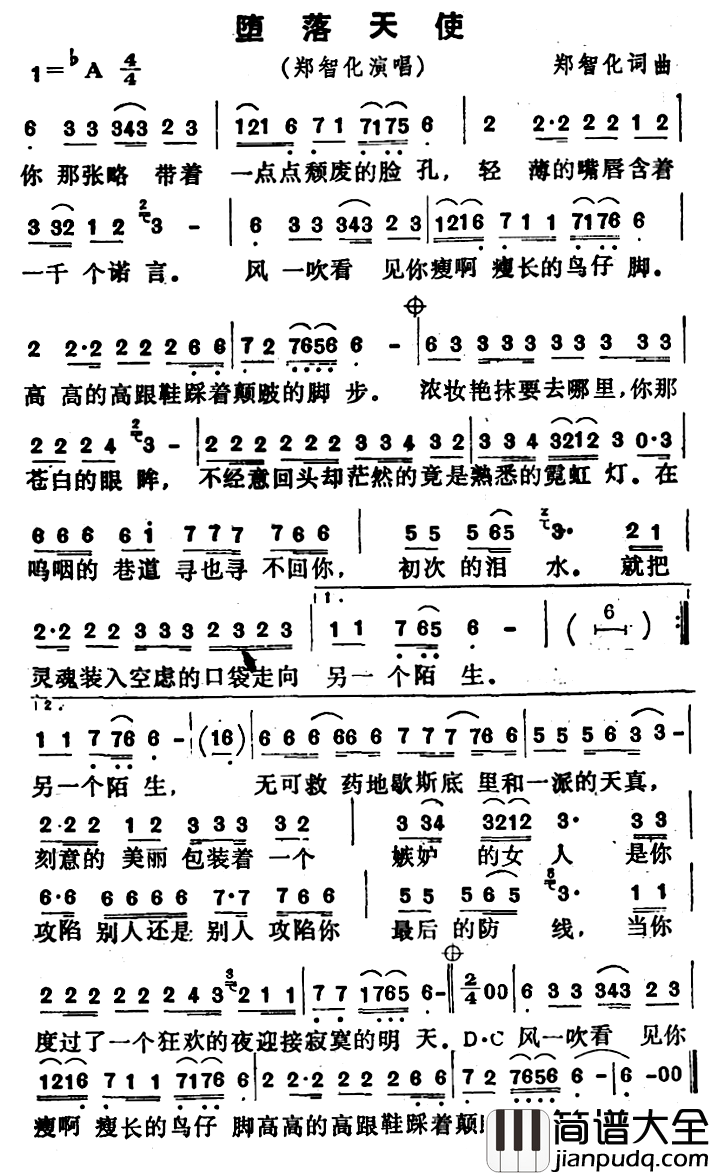 堕落天使
1=♭A 4/4 (郑智化演唱) 郑智化词曲
6 3 3 343 2 3 | 121 6 7 1 7175 6 | 2 2·2 2 2 1 2 |
你 那张略 带着 一点点颓废的脸 孔，轻 薄的嘴唇含着
3 32 1 2 3 - | 6 3 3 343 2 3 | 1216 7 1 1 7176 6 |
一千 个诺 言。 风 一吹看 见你瘦啊 瘦长的鸟仔 脚。
2 2·2 2 2 2 6 6 | 7 2 7656 6 - | 6 3 3 3 3 3 3 3 3 |
高 高的高跟鞋踩着颠跛的脚 步。 浓妆艳抹要去哪里，你那
2 2 2 4 3 - | 2 2 2 2 2 2 3 3 4 3 2 | 3 3 4 3212 3 0·3 |
苍白的眼 眸， 不经意回头却茫然的竟是熟悉的霓虹 灯。在
6 6 6 6 1 7 7 7 7 6 6 | 5 5 5 65 3· 2 1 |
呜咽的 巷道 寻也寻 不回你， 初次 的泪 水。 就把
2·2 2 2 3 3 3 2 3 2 3 | 1. 1 1 7 65 6 - | ( 6 ) :||
灵魂装入空虚的口袋走向 另一 个陌 生。
2. 1 1 7 76 6 - | (16) | 6 6 6 66 6 7 7 7 76 6 | 5 5 5 5 6 3 3 - |
另一个陌 生， 无可救 药地歇斯底 里和一派的天真，
2·2 2 1 2 3 3 3 3 2 | 3 34 3212 3· 3 3 |
刻意的 美丽 包装着 一个 嫉妒 的女 人 是你
6·6 6 6 6 6 7·7 7 6 6 | 5 5 5 6 5 3· 1 1 |
攻陷 别人还是 别人 攻陷你 最后 的防 线， 当你
2 2 2 2 2 2 4 3 2 1 1 | 7 7 1765 6 - || 2/4 00 | 6 3 3 343 2 3 |
度过了一个狂欢的夜迎接寂寞的明 天。D·C 风一吹看 见你
1216 7 1 1 7176 6 | 2 2·2 2 2 2 6 6 | 7 2 7656 6 - | 6 -00 ||
瘦啊 瘦长的鸟仔 脚高高的高跟鞋踩着颠
简谱大全
jianpudq.com